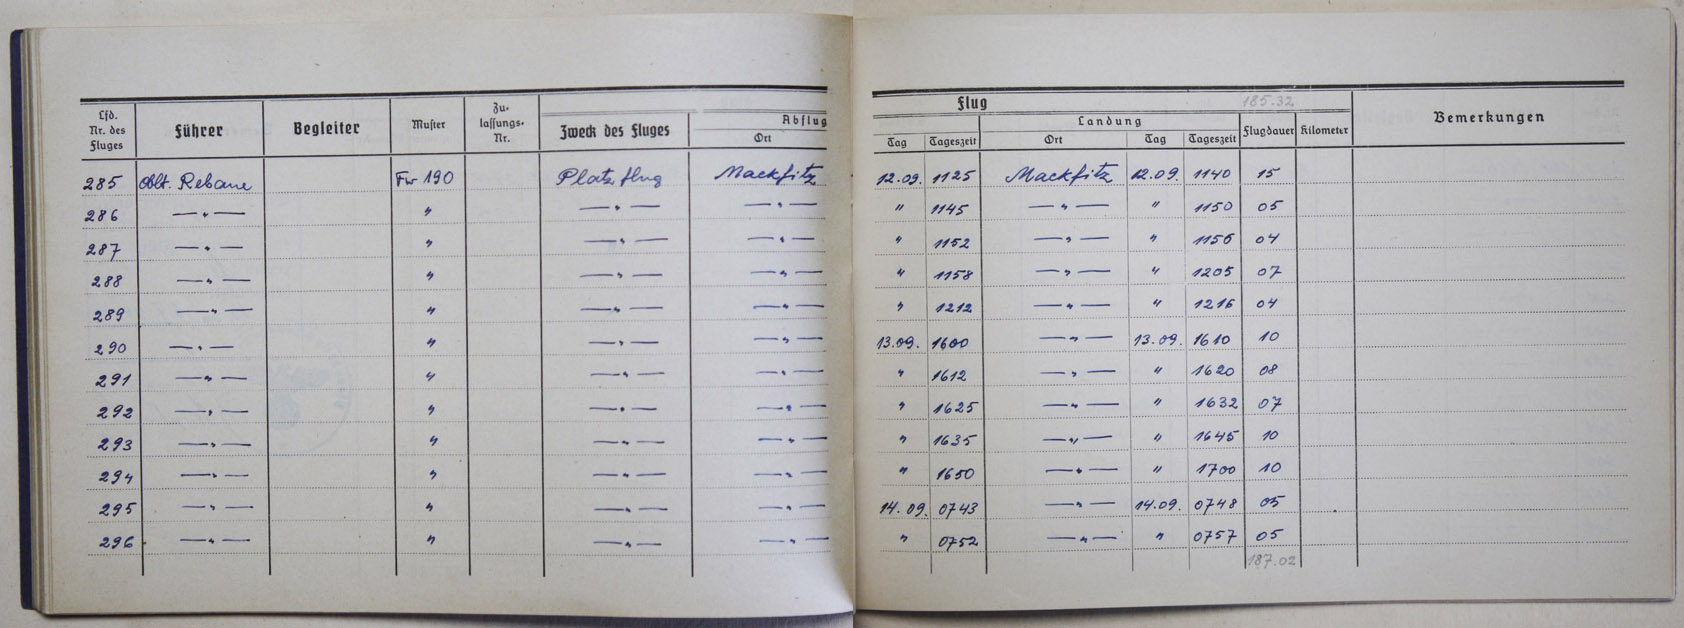 Lfd. Nr. des Fluges Führer Begleiter Muster Zu- lassungs- Nr. Zweck des Fluges Abflug Ort
Flug 185.32
Landung
Tag Tageszeit Ort Tag Tageszeit Flugdauer Kilometer Bemerkungen
285 Oblt. Rebane Fw 190 Platzflug Mackfitz 12.09. 1125 Mackfitz 12.09. 1140 15
286 — " — " — " — — " — " 1145 — " — " 1150 05
287 — " — " — " — — " — " 1152 — " — " 1156 04
288 — " — " — " — — " — " 1158 — " — " 1205 07
289 — " — " — " — — " — " 1212 — " — " 1216 04
290 — " — " — " — — " — 13.09. 1600 — " — 13.09. 1610 10
291 — " — " — " — — " — " 1612 — " — " 1620 08
292 — " — " — " — — " — " 1625 — " — " 1632 07
293 — " — " — " — — " — " 1635 — " — " 1645 10
294 — " — " — " — — " — " 1650 — " — " 1700 10
295 — " — " — " — — " — 14.09. 0743 — " — 14.09. 0748 05
296 — " — " — " — — " — " 0752 — " — " 0757 05
187.02